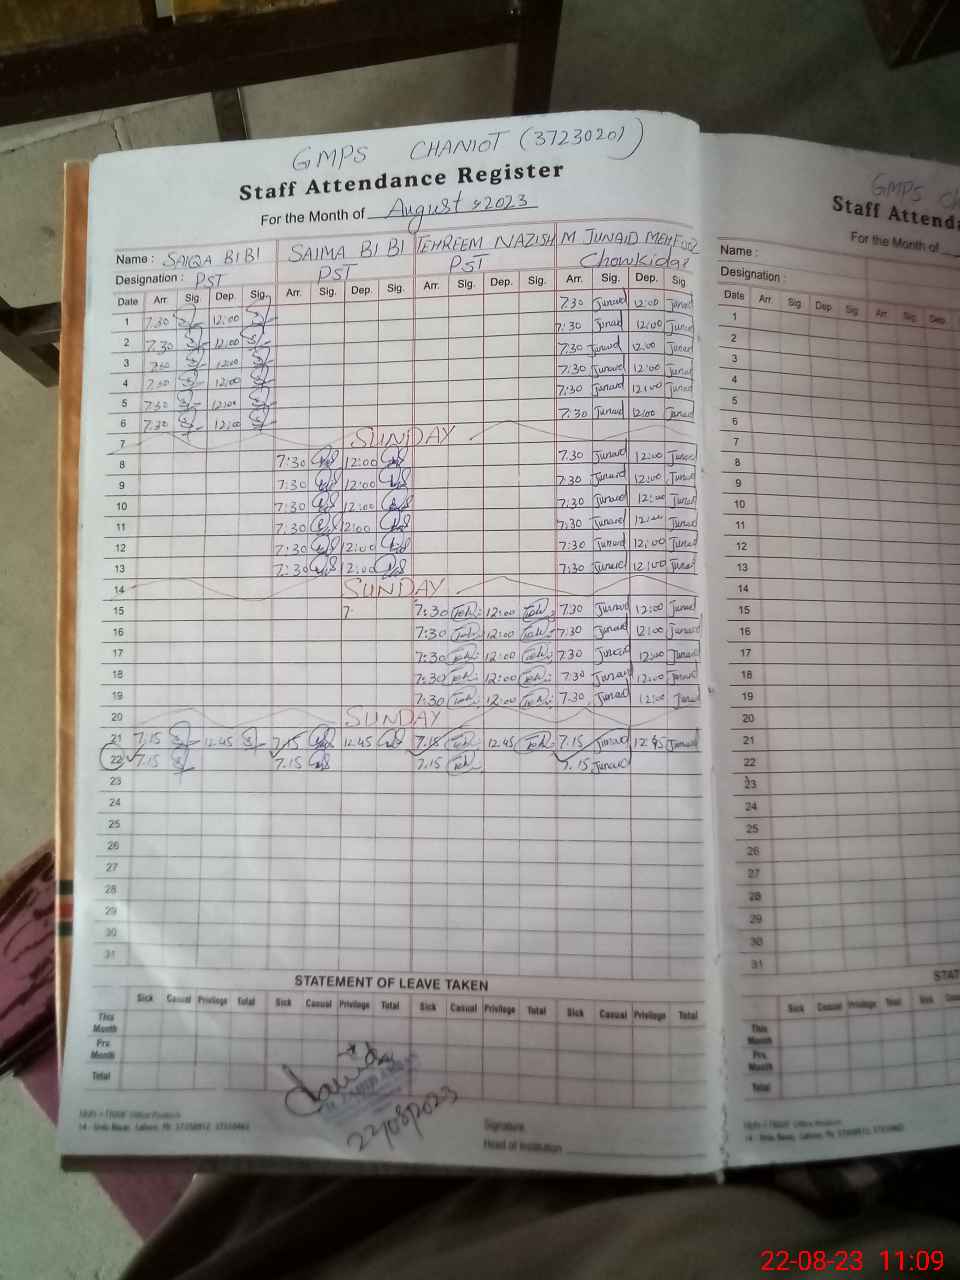 GMPS CHANIOT (37230201)
Staff Attendance Register
For the Month of August, 2023
Name : SAIQA BIBI SAIMA BIBI TEHREEM NAZISH M JUNAID
Designation : PST PST PST Chowkidar
Date Arr. Sig. Dep. Sig. Arr. Sig. Dep. Sig. Arr. Sig. Dep. Sig. Arr. Sig. Dep. Sig.
1 7.30 12:00 7.30 Junaid 12:00 Junaid
2 7.30 12:00 7:30 Junaid 12:00 Junaid
3 7.30 12:00 7.30 Junaid 12:00 Junaid
4 7.30 12:00 7.30 Junaid 12:00 Junaid
5 7.30 12:00 7.30 Junaid 12:00 Junaid
6 7.30 12:00 7.30 Junaid 12:00 Junaid
7 SUNDAY
8 7:30 12:00 7.30 Junaid 12:00 Junaid
9 7:30 12:00 7.30 Junaid 12:00 Junaid
10 7:30 12:00 7:30 Junaid 12:00 Junaid
11 7:30 12:00 7.30 Junaid 12:00 Junaid
12 7:30 12:00 7:30 Junaid 12:00 Junaid
13 7:30 12:00 7:30 Junaid 12:00 Junaid
14 SUNDAY
15 7. 7:30 Teh. 12:00 Teh. 7.30 Junaid 12:00 Junaid
16 7:30 Teh. 12:00 Teh. 7.30 Junaid 12:00 Junaid
17 7:30 Teh. 12:00 Teh. 7.30 Junaid 12:00 Junaid
18 7:30 Teh. 12:00 Teh. 7.30 Junaid 12:00 Junaid
19 7:30 Teh. 12:00 Teh. 7.30 Junaid 12:00 Junaid
20 SUNDAY
21 7.15 12.45 7.15 12.45 7.15 Teh. 12.45 Teh. 7.15 Junaid 12.45 Junaid
22 7.15 7.15 7.15 Teh. 7.15 Junaid
23
24
25
26
27
28
29
30
31
STATEMENT OF LEAVE TAKEN
Sick Casual Privilege Total Sick Casual Privilege Total Sick Casual Privilege Total Sick Casual Privilege Total
This Month
Prv. Month
Total
22/08/2023
Signature
Head of Institution
GMPS
Staff Attenda
For the Month of
Name :
Designation :
Date Arr. Sig. Dep. Sig. Arr. Sig. Dep.
1
2
3
4
5
6
7
8
9
10
11
12
13
14
15
16
17
18
19
20
21
22
23
24
25
26
27
28
29
30
31
STAT
Sick Casual Privilege Total Sick
This Month
Prv. Month
Total
22-08-23 11:09